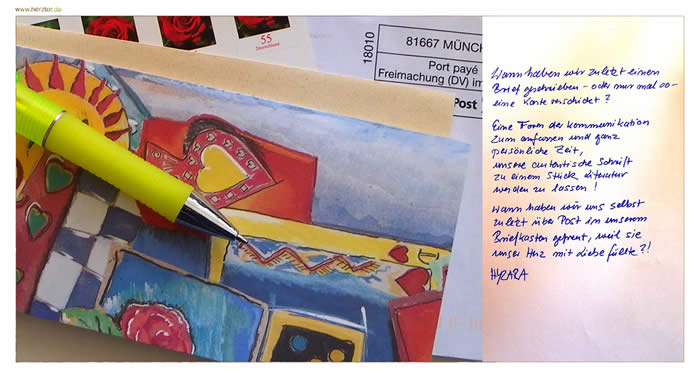 www.herztor.de
55
Deutschland
18010
81667 MÜNCH
Port payé
Freimachung (DV) im
Post
Wann haben wir zuletzt einen
Brief geschrieben - oder nur mal so -
eine Karte verschickt?
Eine Form der Kommunikation
zum anfassen und ganz
persönliche Zeit,
unsere autentische Schrift
zu einem Stück Literatur
werden zu lassen!
Wann haben wir uns selbst
zuletzt über Post in unserem
Briefkasten gefreut, weil sie
unser Herz mit Liebe füllte?!